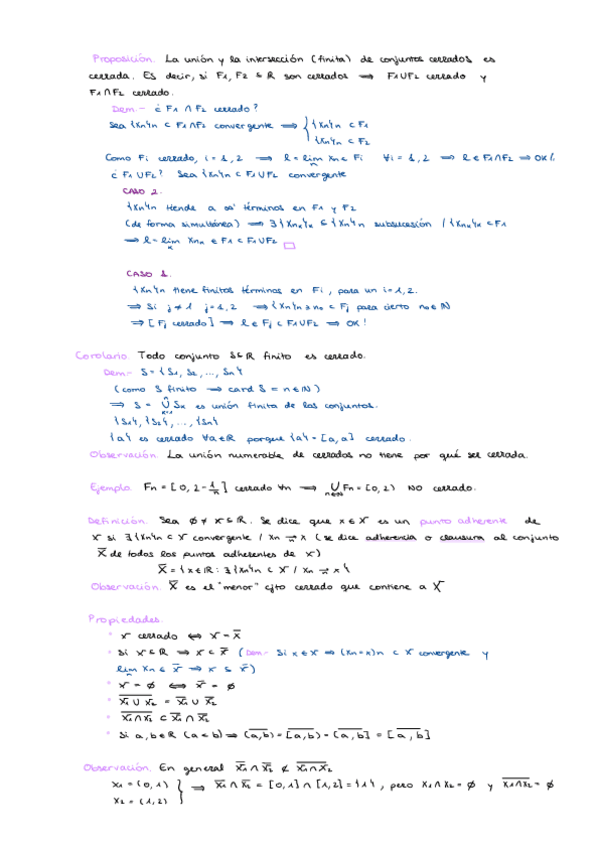 Proposición. La unión y la intersección (finita) de conjuntos cerrados es
cerrada. Es decir, si F₁, F₂ ⊆ ℝ son cerrados ⟹ F₁∪F₂ cerrado y
F₁∩F₂ cerrado.
Dem.- ¿F₁ ∩ F₂ cerrado?
Sea {xₙ}ₙ ⊂ F₁∩F₂ convergente ⟹ { {xₙ}ₙ ⊂ F₁
{xₙ}ₙ ⊂ F₂
Como Fᵢ cerrado, i = 1, 2 ⟹ l = lim xₙ ∈ Fᵢ ∀i = 1, 2 ⟹ l ∈ F₁∩F₂ ⟹ OK!
¿F₁∪F₂? Sea {xₙ}ₙ ⊂ F₁∪F₂ convergente
CASO 2.
{xₙ}ₙ tiende a ∞ términos en F₁ y F₂
(de forma simultánea) ⟹ ∃{xₙₖ}ₖ ⊆ {xₙ}ₙ subsucesión / {xₙₖ}ₖ ⊂ F₁
⟹ l = lim xₙₖ ∈ F₁ ⊂ F₁∪F₂ □
CASO 1.
{xₙ}ₙ tiene finitos términos en Fᵢ, para un i = 1, 2.
⟹ Si j ≠ i j = 1, 2 ⟹ {xₙ}ₙ≥ₙ₀ ⊂ Fⱼ para cierto n₀ ∈ ℕ
⟹ [Fⱼ cerrado] ⟹ l ∈ Fⱼ ⊂ F₁∪F₂ ⟹ OK!
Corolario. Todo conjunto S⊆ℝ finito es cerrado.
Dem.- S = {s₁, s₂, ..., sₙ}
(como S finito ⟹ card S = n ∈ ℕ)
⟹ S = ∪ Sₖ es unión finita de los conjuntos.
{s₁}, {s₂}, ..., {sₙ}
{a} es cerrado ∀a∈ℝ porque {a} = [a, a] cerrado.
Observación. La unión numerable de cerrados no tiene por qué ser cerrada.
Ejemplo. Fₙ = [0, 2 - 1/n] cerrado ∀n ⟹ ∪ₙ∈ℕ Fₙ = [0, 2) NO cerrado.
Definición. Sea ∅ ≠ X ⊆ ℝ. Se dice que x ∈ X es un punto adherente de
X si ∃{xₙ}ₙ ⊂ X convergente / xₙ → x (se dice adherencia o clausura al conjunto
X̅ de todos los puntos adherentes de X)
X̅ = {x ∈ ℝ : ∃{xₙ}ₙ ⊂ X / xₙ → x}
Observación. X̅ es el "menor" cjto cerrado que contiene a X
Propiedades.
• X cerrado ⟺ X = X̅
• Si X ⊆ ℝ ⟹ X ⊂ X̅ (Dem.- Si x ∈ X ⟹ (xₙ = x)ₙ ⊂ X convergente y
lim xₙ ∈ X̅ ⟹ X ⊆ X̅)
• X = ∅ ⟺ X̅ = ∅
• \overline{X₁ ∪ X₂} = X̅₁ ∪ X̅₂
• \overline{X₁ ∩ X₂} ⊂ X̅₁ ∩ X̅₂
• Si a, b ∈ ℝ (a < b) ⟹ \overline{(a, b)} = \overline{[a, b)} = \overline{(a, b]} = \overline{[a, b]}
Observación. En general X̅₁ ∩ X̅₂ ⊄ \overline{X₁∩X₂}
X₁ = (0, 1) } ⟹ X̅₁ ∩ X̅₂ = [0, 1] ∩ [1, 2] = {1}, pero X₁∩X₂ = ∅ y \overline{X₁∩X₂} = ∅
X₂ = (1, 2)